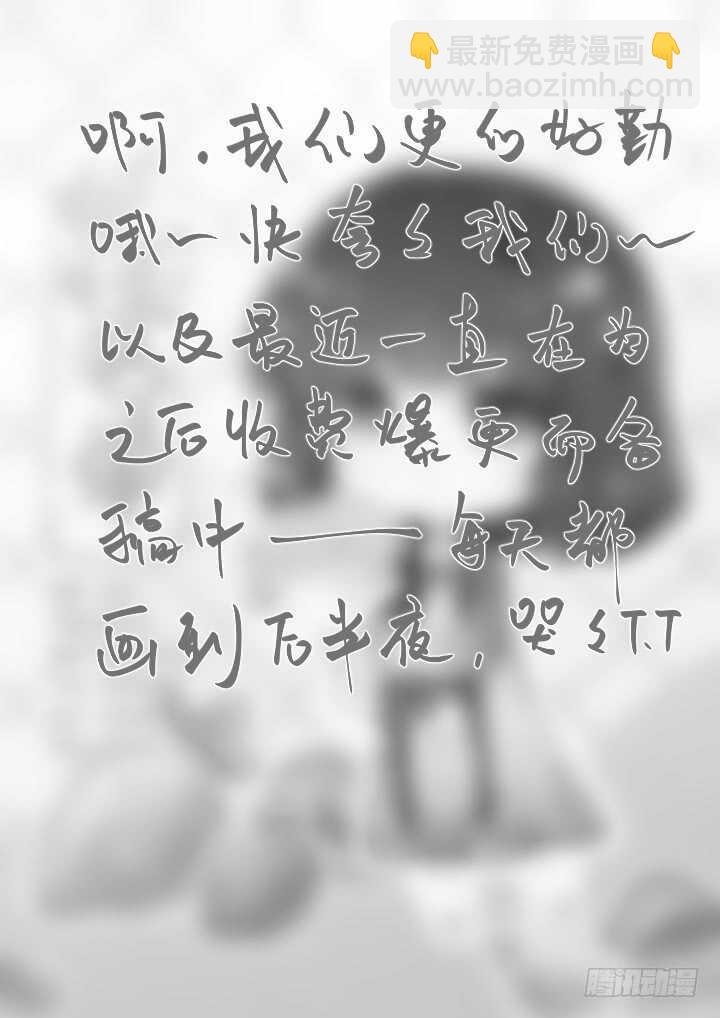 👇最新免费漫画👇
www.baozimh.com
啊.我们更的好勤
哦~快夸夸我们~
以及最近一直在为
之后收费爆更而备
稿中——每天都
画到后半夜，哭々T.T
腾讯动漫